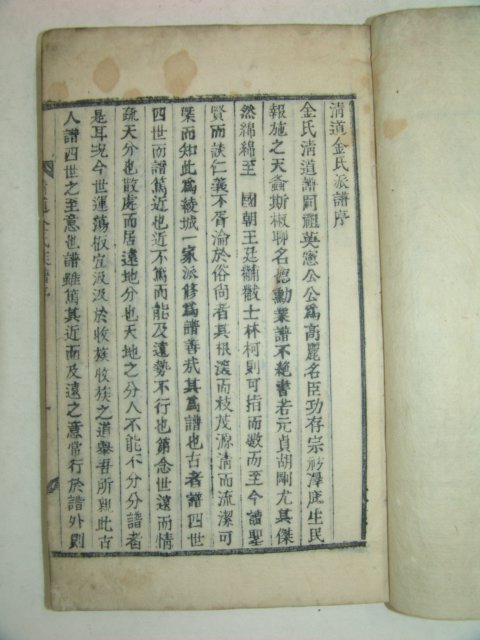 清道金氏派譜序
金氏淸道譜同祖英憲公公爲高麗名臣功存宗祊澤庇生民
報施之天螽斯椒聊名德勳業譜不絶書若元貞胡剛尤其傑
然綿綿至 國朝王廷黼黻士林柯則可指而數而至今講聖
賢而談仁義不胥淪於俗尙者其根深而枝茂源淸而流潔可
槩而知此爲綾城一家派修爲譜善哉其爲譜也古者譜四世
四世而譜篤近也近不篤而能及遠勢不行也第念世遠而情
疏天分也散處而居遠地分也天地之分人不能不分分譜者
是耳況今世運蕩佷宜汲汲於收族收族之道舉吾所 此古
人譜四世之至意也譜雖篤其近而及遠之意常行於譜外則
道金氏派譜序